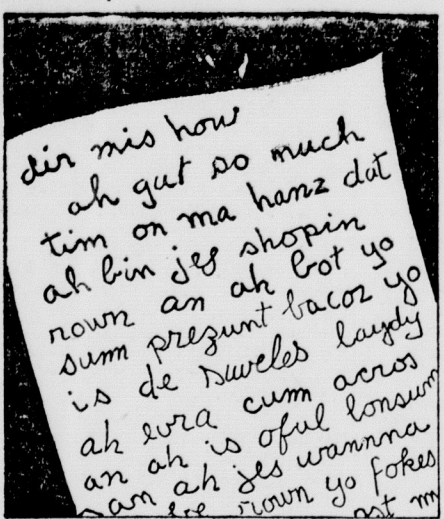 dir mis how
ah gut so much
tim on ma hanz dat
ah bin jes shopin
rown an ah bot yo
sum prezunt bacoz yo
is de suveles laydy
ah evra cum acros
an ah is oful lonsum
an ah jes wannna
rown yo fokes